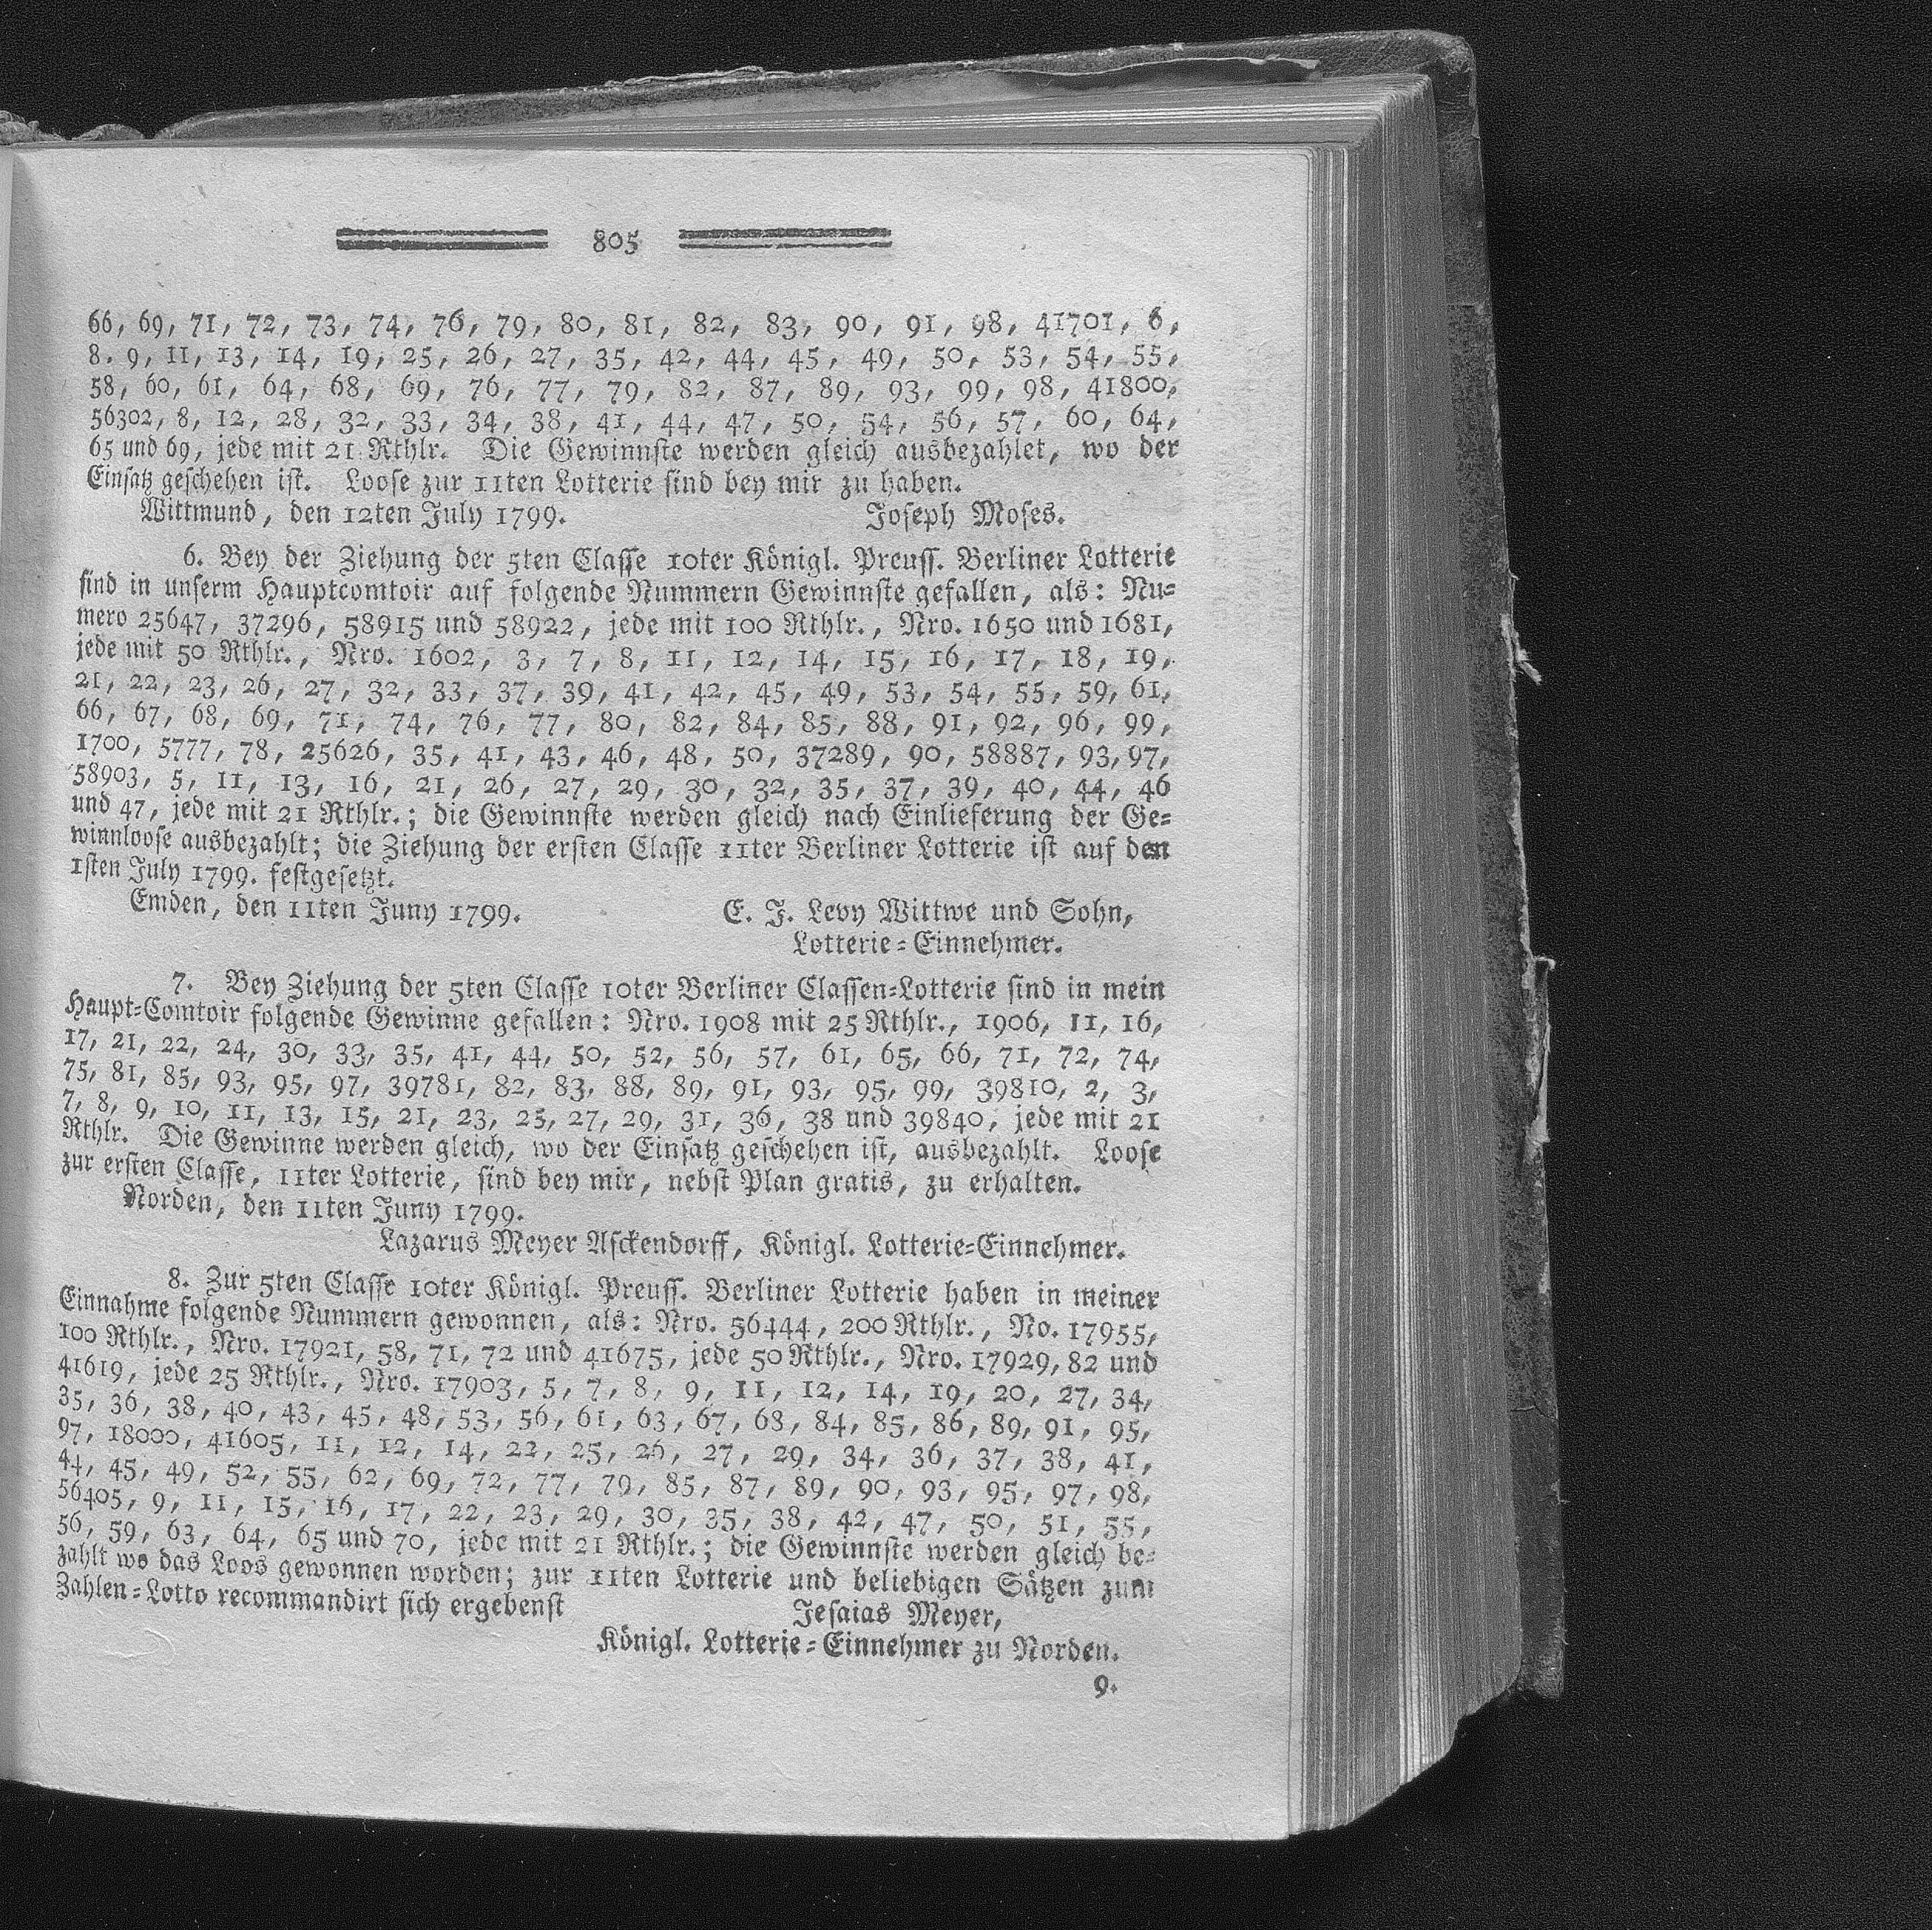 805
66, 69, 71, 72, 73, 74, 76, 79, 80, 81, 82, 83, 90, 91, 98, 41701, 6,
8. 9, 11, 13, 14, 19, 25, 26, 27, 35, 42, 44, 45, 49, 50, 53, 54, 55,
58, 60, 61, 64, 68, 69, 76, 77, 79, 82, 87, 89, 93, 99, 98, 41800,
56302, 8, 12, 28, 32, 33, 34, 38, 41, 44, 47, 50, 54, 56, 57, 60, 64,
65 und 69, jede mit 21 Rthlr. Die Gewinnste werden gleich ausbezahlet, wo der
Einsatz geschehen ist. Loose zur 11ten Lotterie sind bey mir zu haben.
Wittmund, den 12ten July 1799. Joseph Moses.
6. Bey der Ziehung der 5ten Classe 10ter Königl. Preuss. Berliner Lotterie
sind in unserm Hauptcomtoir auf folgende Nummern Gewinnste gefallen, als: Nu-
mero 25647, 37296, 58915 und 58922, jede mit 100 Rthlr., Nro. 1650 und 1681,
jede mit 50 Rthlr., Nro. 1602, 3, 7, 8, 11, 12, 14, 15, 16, 17, 18, 19,
21, 22, 23, 26, 27, 32, 33, 37, 39, 41, 42, 45, 49, 53, 54, 55, 59, 61,
66, 67, 68, 69, 71, 74, 76, 77, 80, 82, 84, 85, 88, 91, 92, 96, 99,
1700, 5777, 78, 25626, 35, 41, 43, 46, 48, 50, 37289, 90, 58887, 93, 97,
58903, 5, 11, 13, 16, 21, 26, 27, 29, 30, 32, 35, 37, 39, 40, 44, 46
und 47, jede mit 21 Rthlr.; die Gewinnste werden gleich nach Einlieferung der Ge-
winnloose ausbezahlt; die Ziehung der ersten Classe 11ter Berliner Lotterie ist auf den
1sten July 1799. festgesetzt.
Emden, den 11ten Juny 1799. E. J. Levy Wittwe und Sohn,
Lotterie-Einnehmer.
7. Bey Ziehung der 5ten Classe 10ter Berliner Classen-Lotterie sind in mein
Haupt-Comtoir folgende Gewinne gefallen: Nro. 1908 mit 25 Rthlr., 1906, 11, 16,
17, 21, 22, 24, 30, 33, 35, 41, 44, 50, 52, 56, 57, 61, 65, 66, 71, 72, 74,
75, 81, 85, 93, 95, 97, 39781, 82, 83, 88, 89, 91, 93, 95, 99, 39810, 2, 3,
7, 8, 9, 10, 11, 13, 15, 21, 23, 25, 27, 29, 31, 36, 38 und 39840, jede mit 21
Rthlr. Die Gewinne werden gleich, wo der Einsatz geschehen ist, ausbezahlt. Loose
zur ersten Classe, 11ter Lotterie, sind bey mir, nebst Plan gratis, zu erhalten.
Norden, den 11ten Juny 1799.
Lazarus Meyer Asckendorff, Königl. Lotterie-Einnehmer.
8. Zur 5ten Classe 10ter Königl. Preuss. Berliner Lotterie haben in meiner
Einnahme folgende Nummern gewonnen, als: Nro. 56444, 200 Rthlr., No. 17955,
100 Rthlr., Nro. 17921, 58, 71, 72 und 41675, jede 50 Rthlr., Nro. 17929, 82 und
41619, jede 25 Rthlr., Nro. 17903, 5, 7, 8, 9, 11, 12, 14, 19, 20, 27, 34,
35, 36, 38, 40, 43, 45, 48, 53, 56, 61, 63, 67, 68, 84, 85, 86, 89, 91, 95,
97, 18000, 41605, 11, 12, 14, 22, 25, 26, 27, 29, 34, 36, 37, 38, 41,
44, 45, 49, 52, 55, 62, 69, 72, 77, 79, 85, 87, 89, 90, 93, 95, 97, 98,
56405, 9, 11, 15, 16, 17, 22, 23, 29, 30, 35, 38, 42, 47, 50, 51, 55,
56, 59, 63, 64, 65 und 70, jede mit 21 Rthlr.; die Gewinnste werden gleich be-
zahlt wo das Loos gewonnen worden; zur 11ten Lotterie und beliebigen Sätzen zum
Zahlen-Lotto recommandirt sich ergebenst Jesaias Meyer,
Königl. Lotterie-Einnehmer zu Norden.
9.